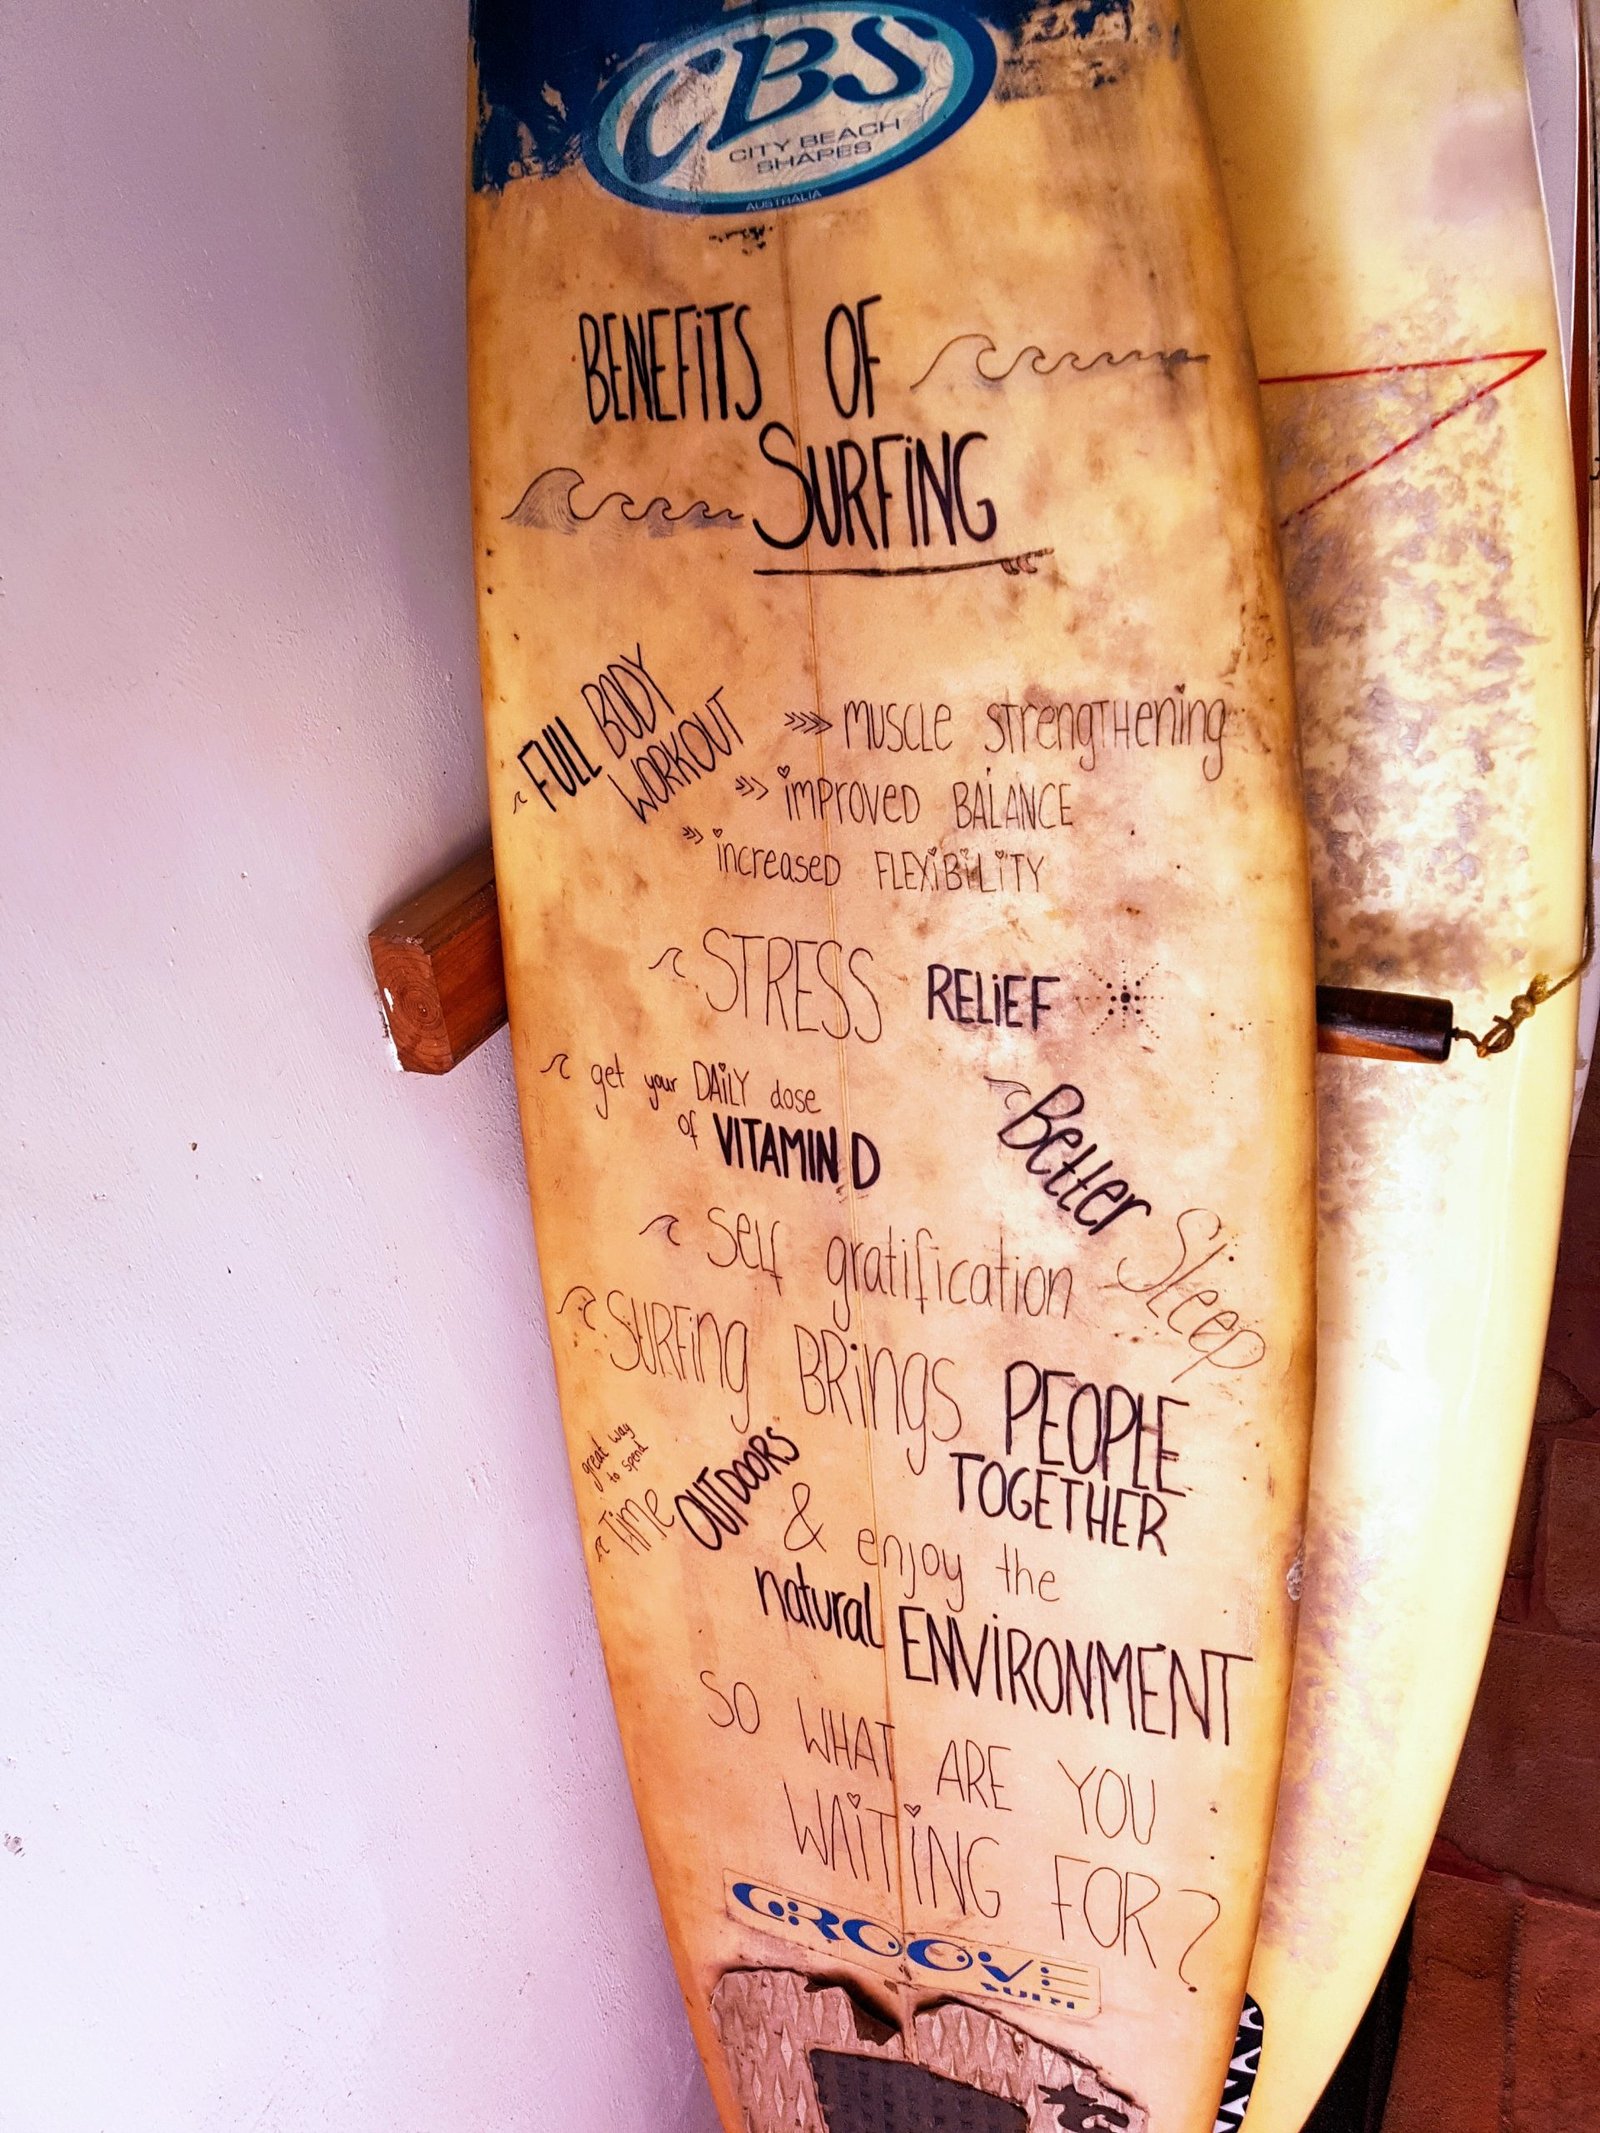 CBS
CITY BEACH
SHAPES
AUSTRALIA
BENEFiTS OF
SURFiNG
FULL BODY
WORKOUT
MUSCLE STrengTHening
imPROVED BALANCE
increaseD FLEXiBiLiTY
STRESS RELiEF
get your DAiLY dose
of VITAMIN D
Better Sleep
Self gratification
SURFing BRings PEOPLE
TOGETHER
great way
to spend
Time OUTDOORS
& enjoy the
natural ENViRONMENT
SO WHAT ARE YOU
WAiTiNG FOR?
GROOVE